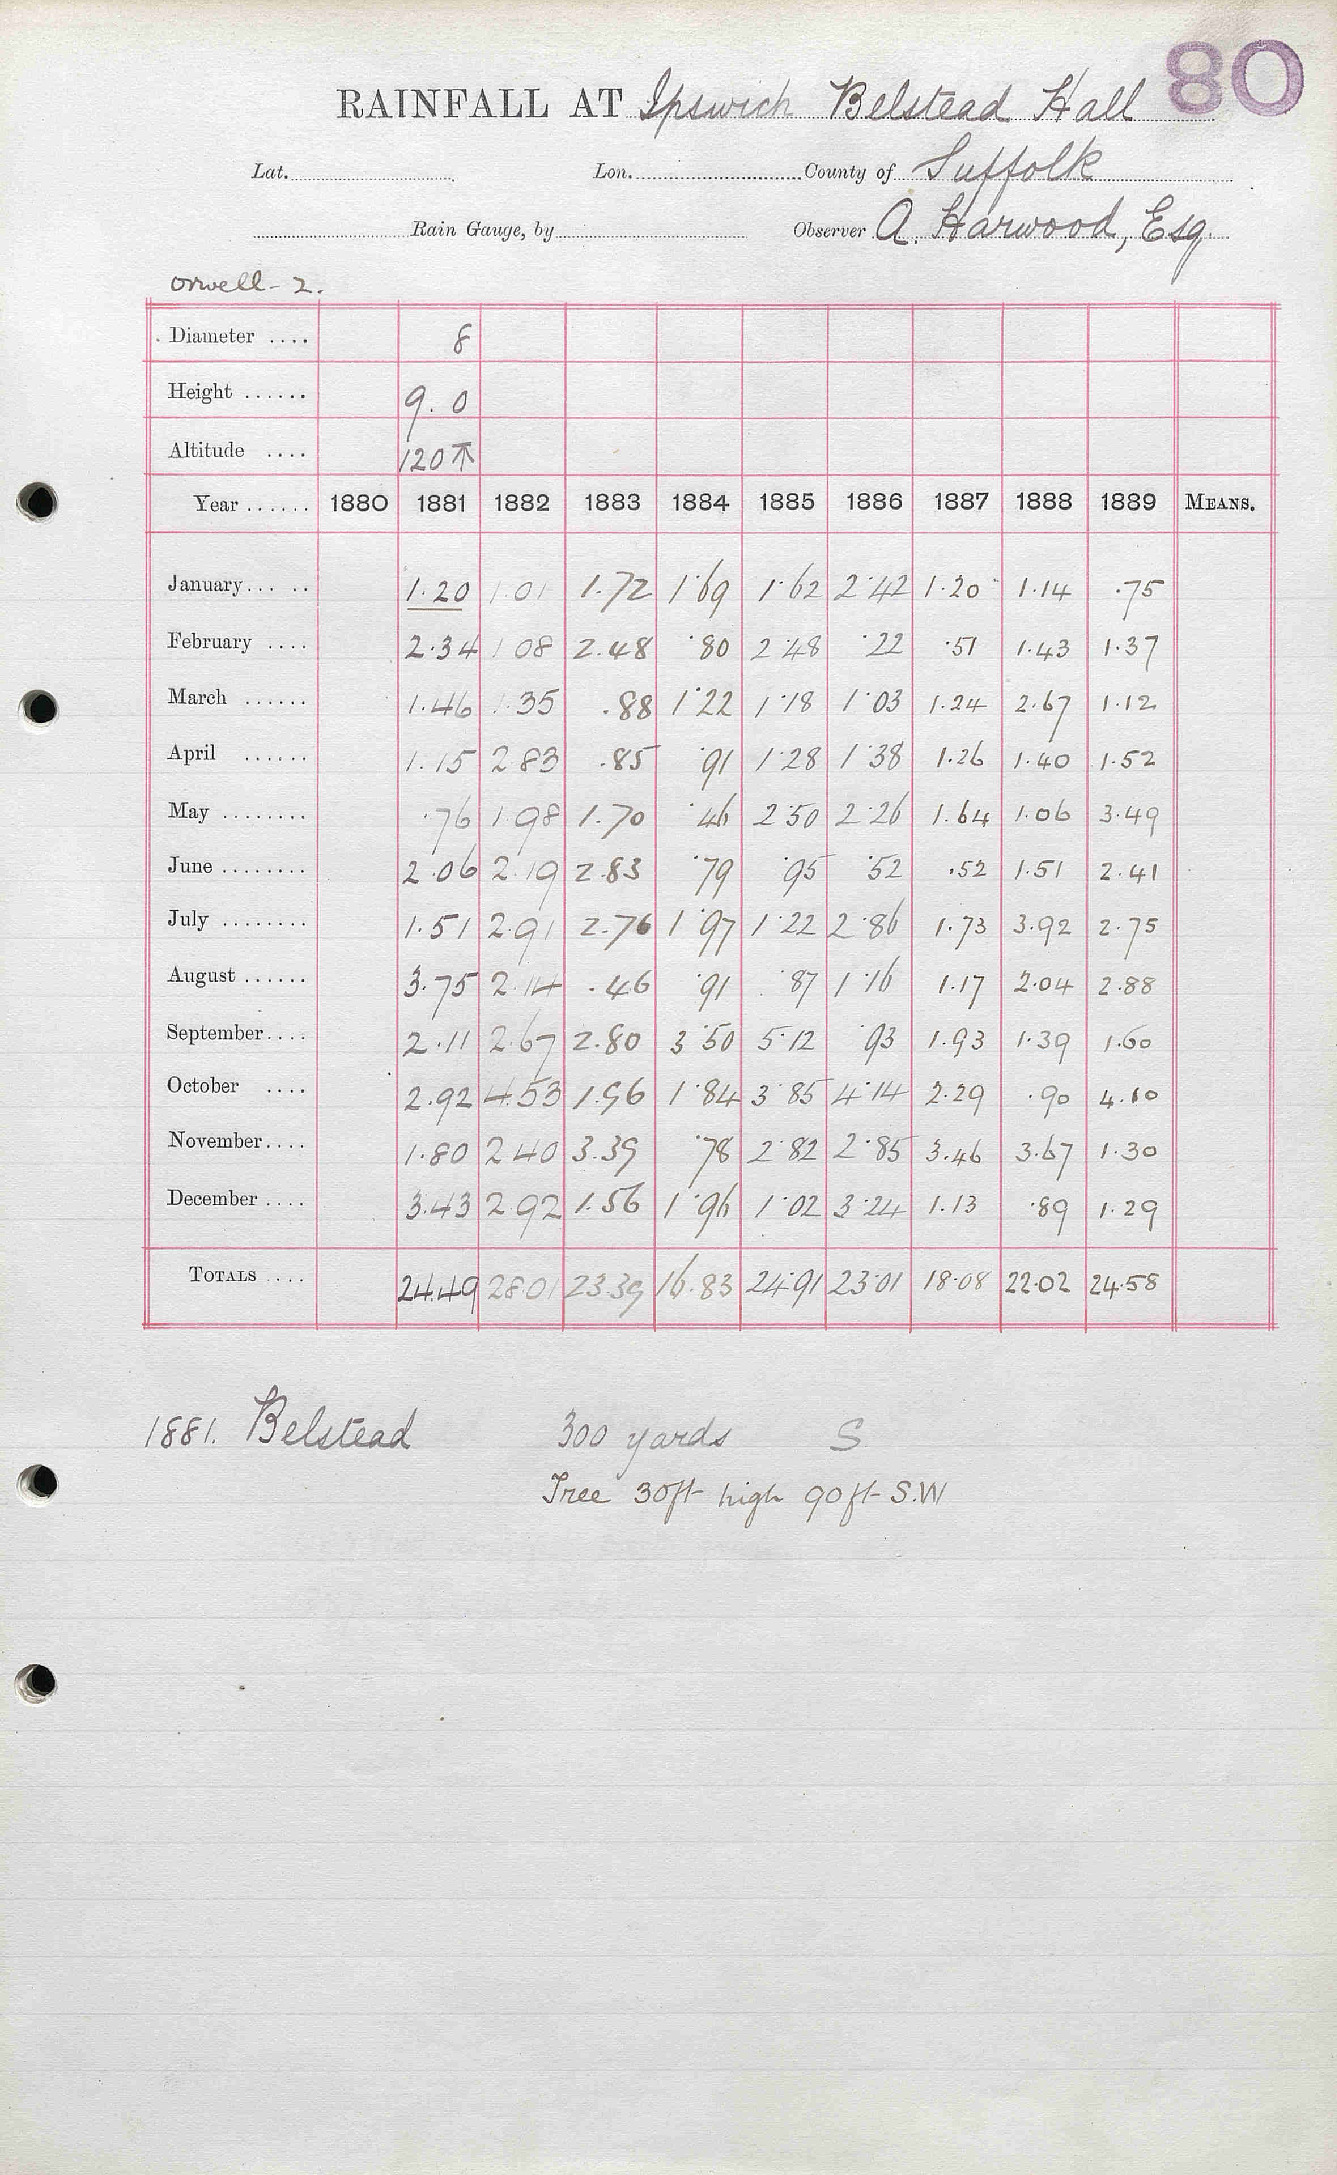 80
RAINFALL AT Ipswich Belstead Hall
Lat. Lon. County of Suffolk
Rain Gauge, by Observer A. Harwood, Esq.
Orwell - 2.
Diameter .... 8
Height ...... 9. 0
Altitude .... 120 ↑
Year ...... 1880 1881 1882 1883 1884 1885 1886 1887 1888 1889 MEANS.
January... .. 1.20 1.01 1.72 1.69 1.62 2.42 1.20 1.14 .75
February .... 2.34 1.08 2.48 .80 2.48 .22 .51 1.43 1.37
March ...... 1.46 1.35 .88 1.22 1.18 1.03 1.24 2.67 1.12
April ...... 1.15 2.83 .85 .91 1.28 1.38 1.26 1.40 1.52
May ........ .76 1.98 1.70 .46 2.50 2.26 1.64 1.06 3.49
June ........ 2.06 2.19 2.83 .79 .95 .52 .52 1.51 2.41
July ........ 1.51 2.91 2.76 1.97 1.22 2.86 1.73 3.92 2.75
August ...... 3.75 2.14 .46 .91 .87 1.16 1.17 2.04 2.88
September.... 2.11 2.67 2.80 3.50 5.12 .93 1.93 1.39 1.60
October .... 2.92 4.53 1.96 1.84 3.85 4.14 2.29 .90 4.10
November.... 1.80 2.40 3.39 .78 2.82 2.85 3.46 3.67 1.30
December .... 3.43 2.92 1.56 1.96 1.02 3.24 1.13 .89 1.29
TOTALS .... 24.49 28.01 23.39 16.83 24.91 23.01 18.08 22.02 24.58
1881. Belstead 300 yards S
Tree 30ft high 90ft S.W